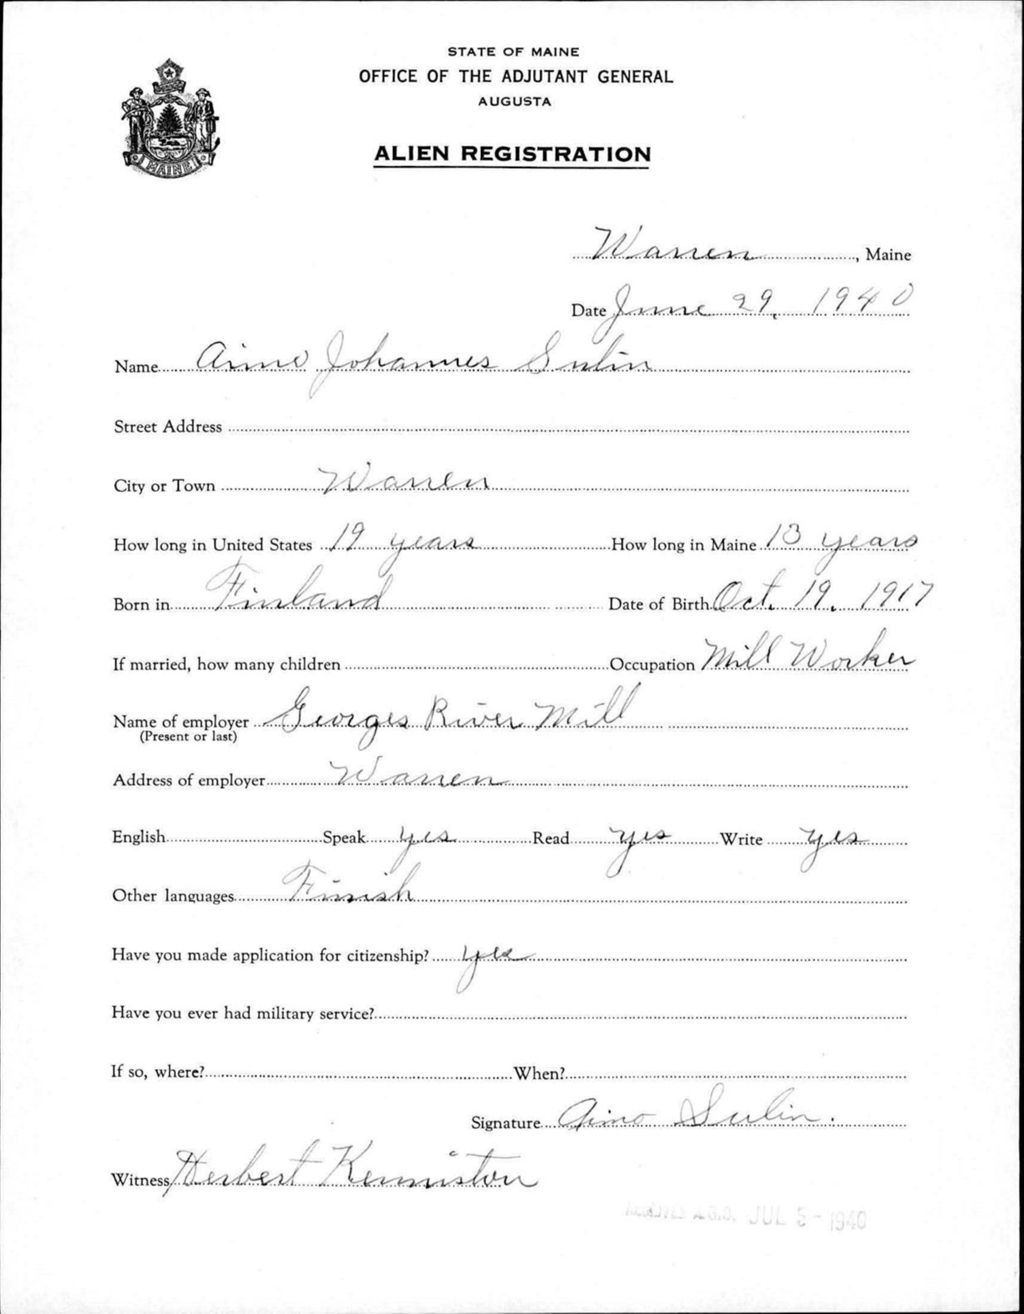 STATE OF MAINE
OFFICE OF THE ADJUTANT GENERAL
AUGUSTA
ALIEN REGISTRATION
MAINE
Warren, Maine
Date June 29, 1940
Name Aimo Johannes Sulin
Street Address
City or Town Warren
How long in United States 19 years How long in Maine 13 years
Born in Finland Date of Birth Oct. 19, 1917
If married, how many children Occupation Mill Worker
Name of employer Georges River Mill
(Present or last)
Address of employer Warren
English Speak yes Read yes Write yes
Other languages Finish
Have you made application for citizenship? yes
Have you ever had military service?
If so, where? When?
Signature Aimo Sulin.
Witness Herbert Kenniston
A.G.O. JUL 3 - 1940